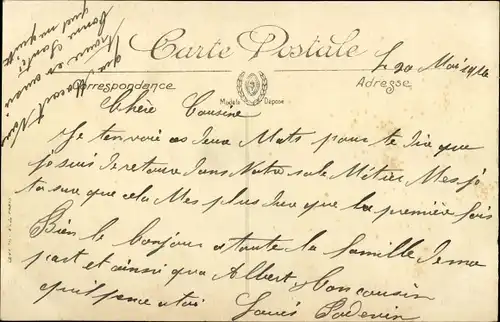 Carte Postale
Le 20 Mai 1916
Correspondance
Modèle Déposé
Adresse
Chère Cousine
Je tenvoie ces deux Mots pour te dire que
je suis de retoure dans Notre sale Métier Mes je
tasure que cela Mes plus dure que la première fois
Bien le bonjour a toute la famille de ma
part et ainsi qua Albert Ton cousin
qui pence a toi
Louis